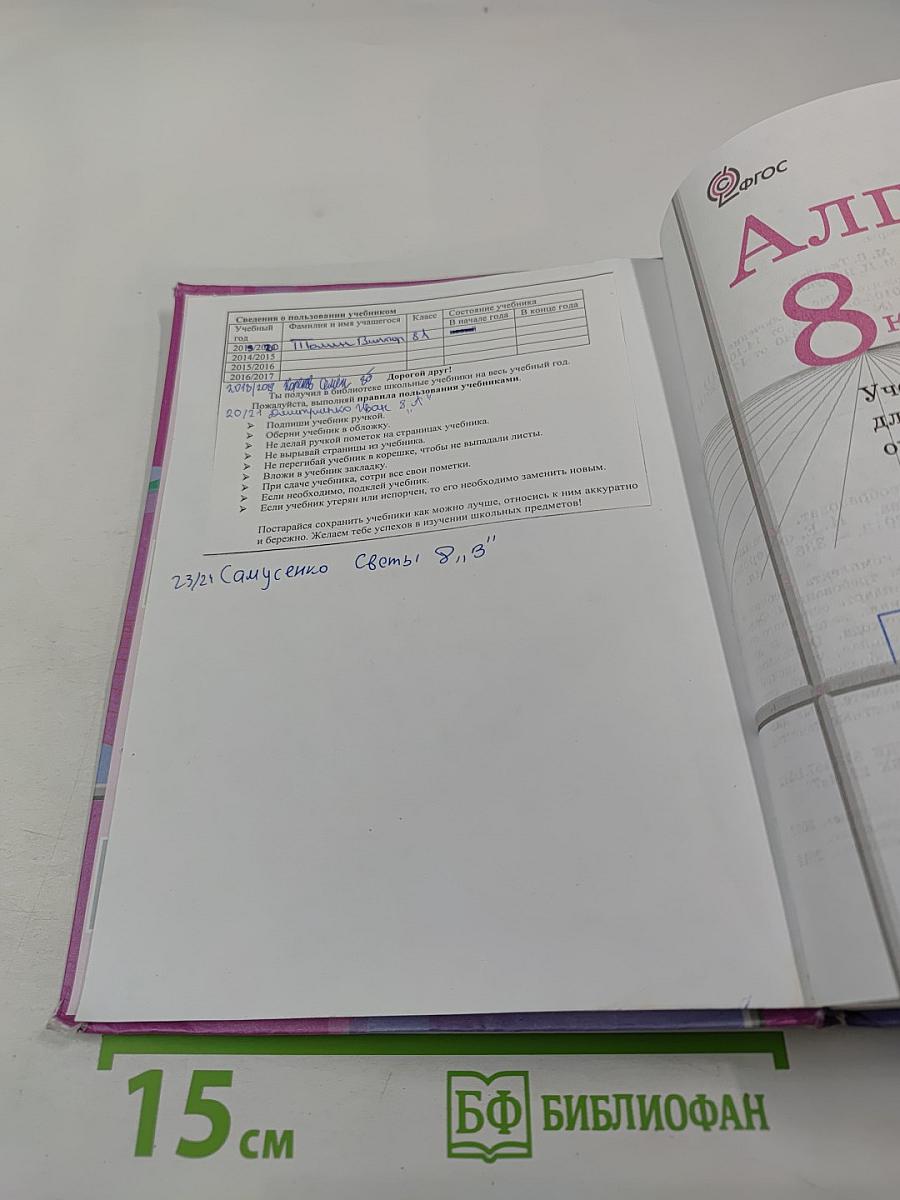 Сведения о пользовании учебником
Учебный год
Фамилия и имя учащегося
Класс
Состояние учебника
В начале года
В конце года
2019/2020 Виктор 8А
2014/2015
2015/2016
2016/2017
2018/2019 Семён 8б
Дорогой друг!
Ты получил в библиотеке школьные учебники на весь учебный год.
Пожалуйста, выполняй правила пользования учебниками.
20/21 Дмитриенко Иван 8 „А"
➢ Подпиши учебник ручкой.
➢ Оберни учебник в обложку.
➢ Не делай ручкой пометок на страницах учебника.
➢ Не вырывай страницы из учебника.
➢ Не перегибай учебник в корешке, чтобы не выпадали листы.
➢ Вложи в учебник закладку.
➢ При сдаче учебника, сотри все свои пометки.
➢ Если необходимо, подклей учебник.
➢ Если учебник утерян или испорчен, то его необходимо заменить новым.
Постарайся сохранить учебники как можно лучше, относись к ним аккуратно
и бережно. Желаем тебе успехов в изучении школьных предметов!
23/24 Самусенко Светы 8 „В"
ФГОС
Алг
8 к
Уче
дл
о
15 см
БФ БИБЛИОФАН